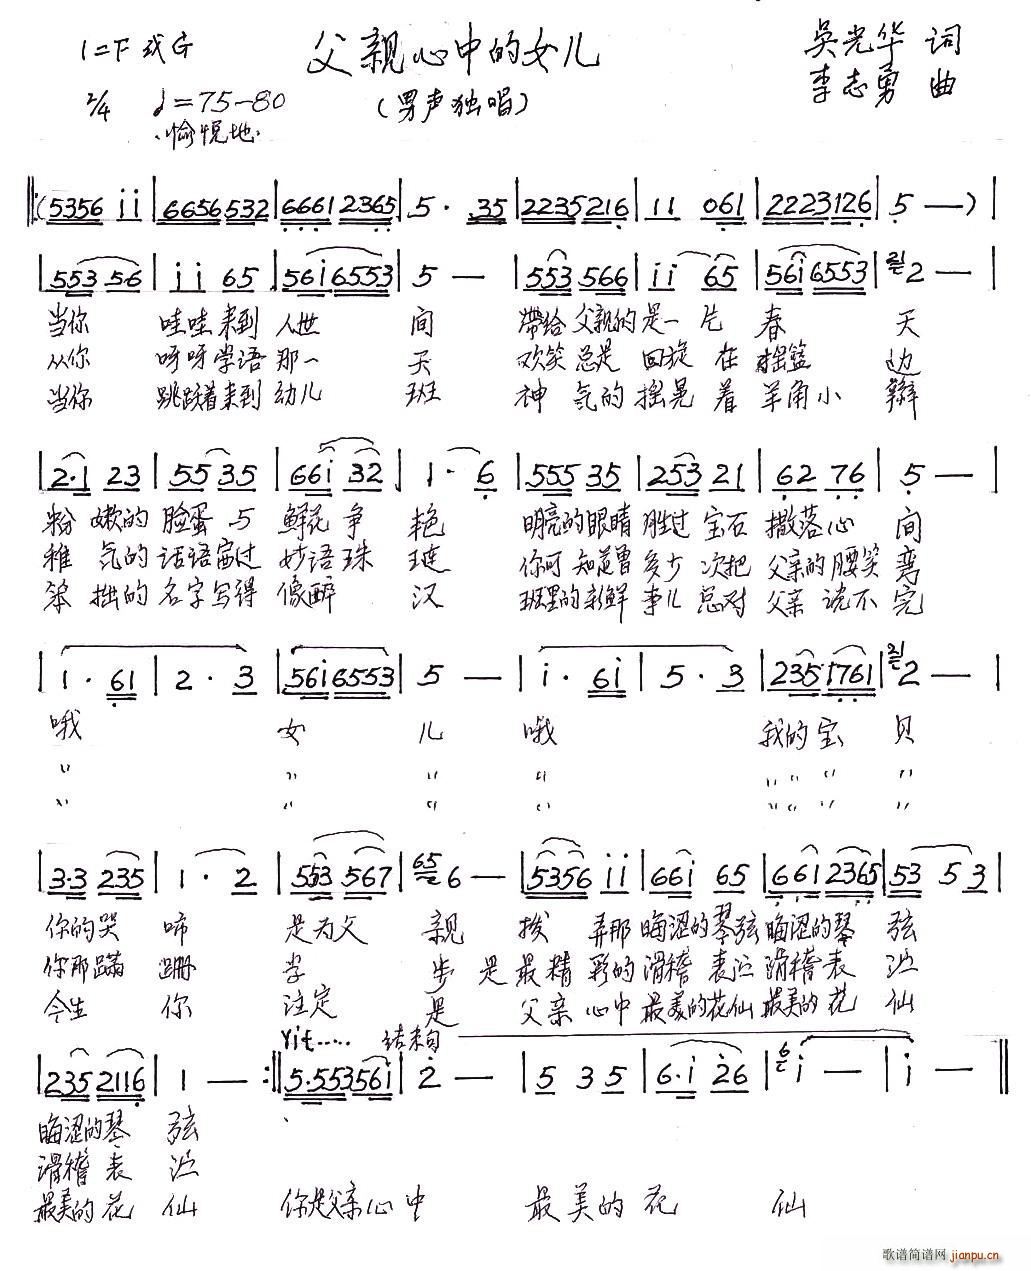 1=F 或 G
父亲心中的女儿
吴光华 词
2/4 ♩=75-80
(男声独唱)
李志勇 曲
愉悦地
‖:(5356 ii | 6656 532 | 6661 2365 | 5· 35 | 2235 216 | 11 061 | 2223 126 | 5 — ) |
| 553 56 | ii 65 | 56i 6553 | 5 — | 553 566 | ii 65 | 56i 6553 | 2 — |
当你 哇哇来到 人世 间 带给 父亲的 是一 片 春 天
从你 呀呀学语 那一 天 欢笑 总是 回旋 在 摇篮 边
当你 跳跃着来到 幼儿 班 神 气的 摇晃 着 羊角小 辫
| 2·1 23 | 55 35 | 66i 32 | 1· 6 | 555 35 | 253 21 | 62 76 | 5 — |
粉 嫩的 脸蛋 与 鲜花 争 艳 明亮的眼睛 胜过 宝石 撒落心 间
稚 气的 话语富过 妙语 珠 琏 你可 知道曾 多少 次把 父亲的腰笑 弯
笨 拙的 名字写得 像醉 汉 班里的新鲜 事儿 总对 父亲 说不 完
| 1· 61 | 2· 3 | 56i 6553 | 5 — | i· 6i | 5· 3 | 235 1761 | 2 — |
哦 女 儿 哦 我的宝 贝
〃 〃 〃 〃 〃 〃 〃 〃
〃 〃 〃 〃 〃 〃 〃 〃
| 3·3 235 | 1· 2 | 553 567 | 65 6 — | 5356 ii | 66i 65 | 66i 2365 | 53 5 3 |
你的哭 啼 是为父 亲 拨 弄那 晦涩的琴弦 晦涩的琴 弦
你那蹒 跚 学 步 是 最 精 彩的 滑稽 表演 滑稽 表 演
今生 你 注定 是 父亲 心中 最美的花仙 最美的 花 仙
结束句
| 235 2116 | 1 — :‖ 5·55356i | 2 — | 5 3 5 | 6·i 26 | i — | i — ‖
晦涩的琴 弦
滑稽 表 演
最美的 花 仙 你是父亲心中 最美的 花 仙
歌谱简谱网 jianpu.cn